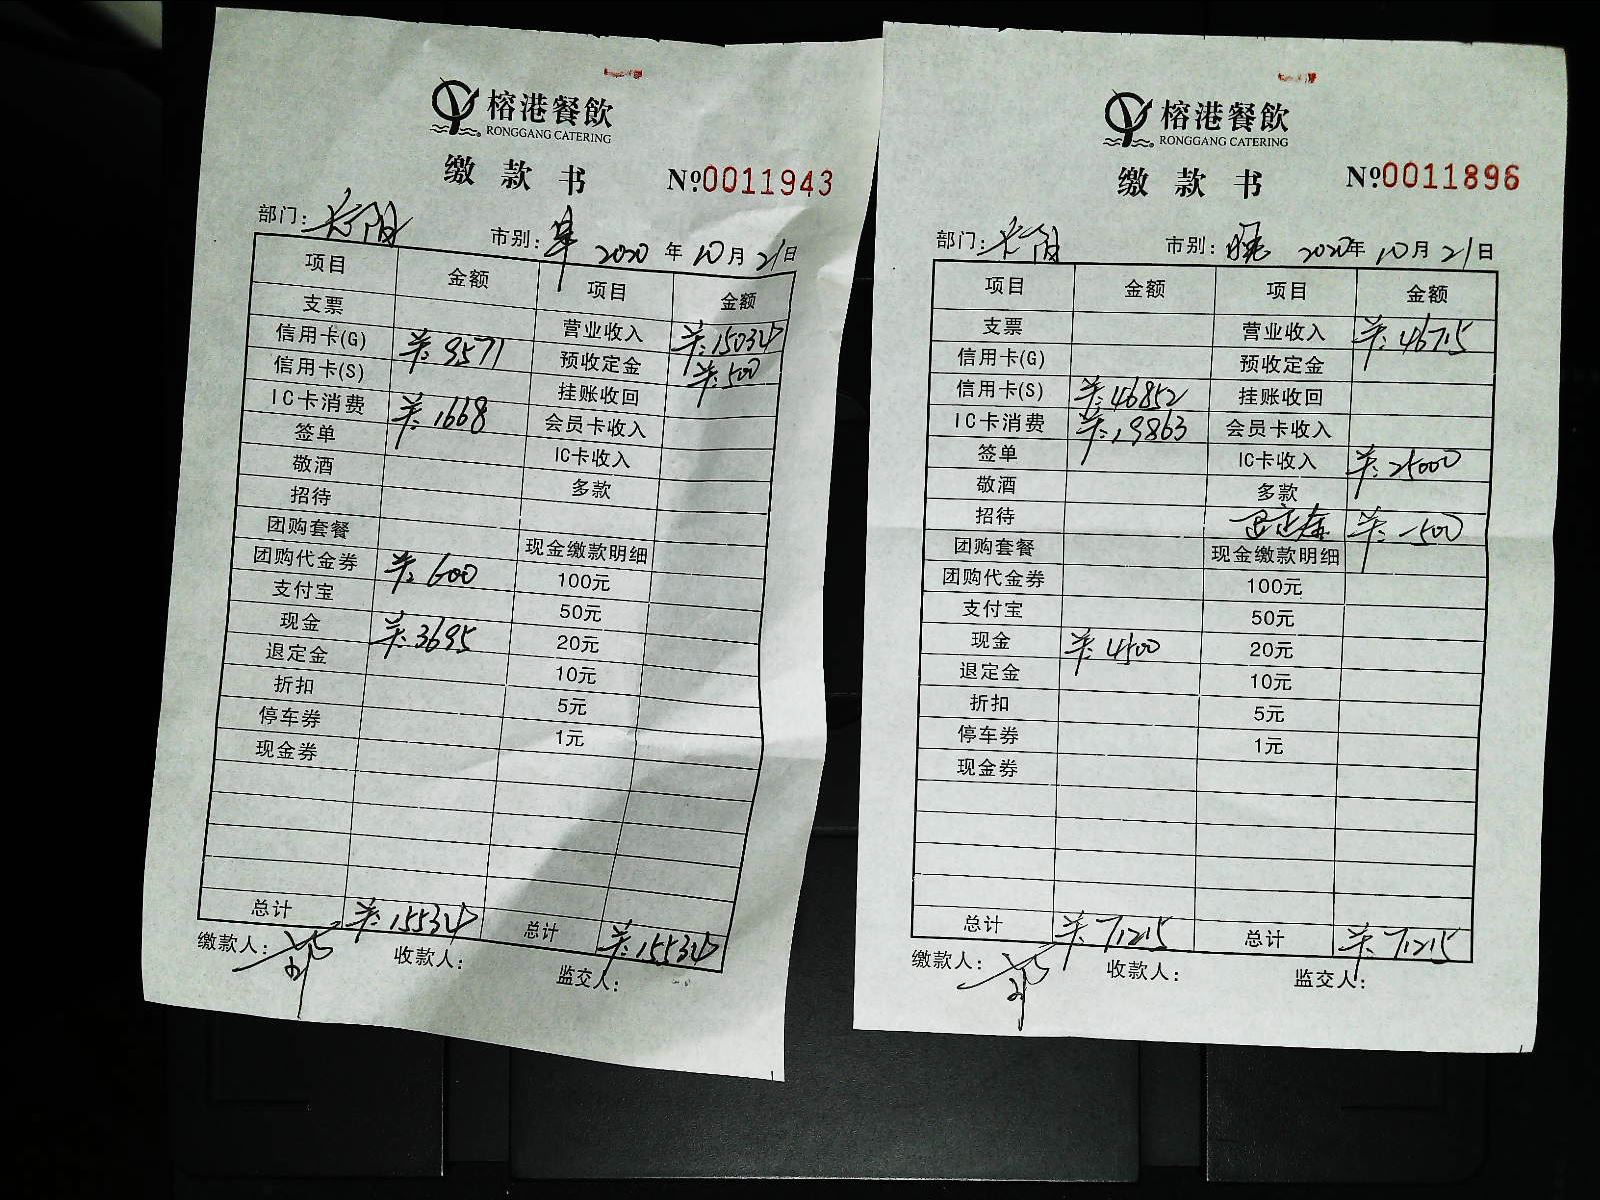 榕港餐飲
RONGGANG CATERING
缴款书 №0011943
部门: 市别: 早 2020年10月21日
项目 金额 项目 金额
支票 营业收入 羊:15034
信用卡(G) 羊:9571 预收定金 羊:500
信用卡(S) 挂账收回
IC卡消费 羊:1668 会员卡收入
签单 IC卡收入
敬酒 多款
招待
团购套餐 现金缴款明细
团购代金券 羊:600 100元
支付宝 50元
现金 羊:3695 20元
退定金 10元
折扣 5元
停车券 1元
现金券
总计 羊:15534 总计 羊:15534
缴款人: 收款人: 监交人:
榕港餐飲
RONGGANG CATERING
缴款书 №0011896
部门: 市别: 晚 2020年10月21日
项目 金额 项目 金额
支票 营业收入 羊:46715
信用卡(G) 预收定金
信用卡(S) 羊:46852 挂账收回
IC卡消费 羊:19863 会员卡收入
签单 IC卡收入 羊:25000
敬酒 多款
招待 退定金 羊:-500
团购套餐 现金缴款明细
团购代金券 100元
支付宝 50元
现金 羊:4500 20元
退定金 10元
折扣 5元
停车券 1元
现金券
总计 羊:71215 总计 羊:71215
缴款人: 收款人: 监交人: